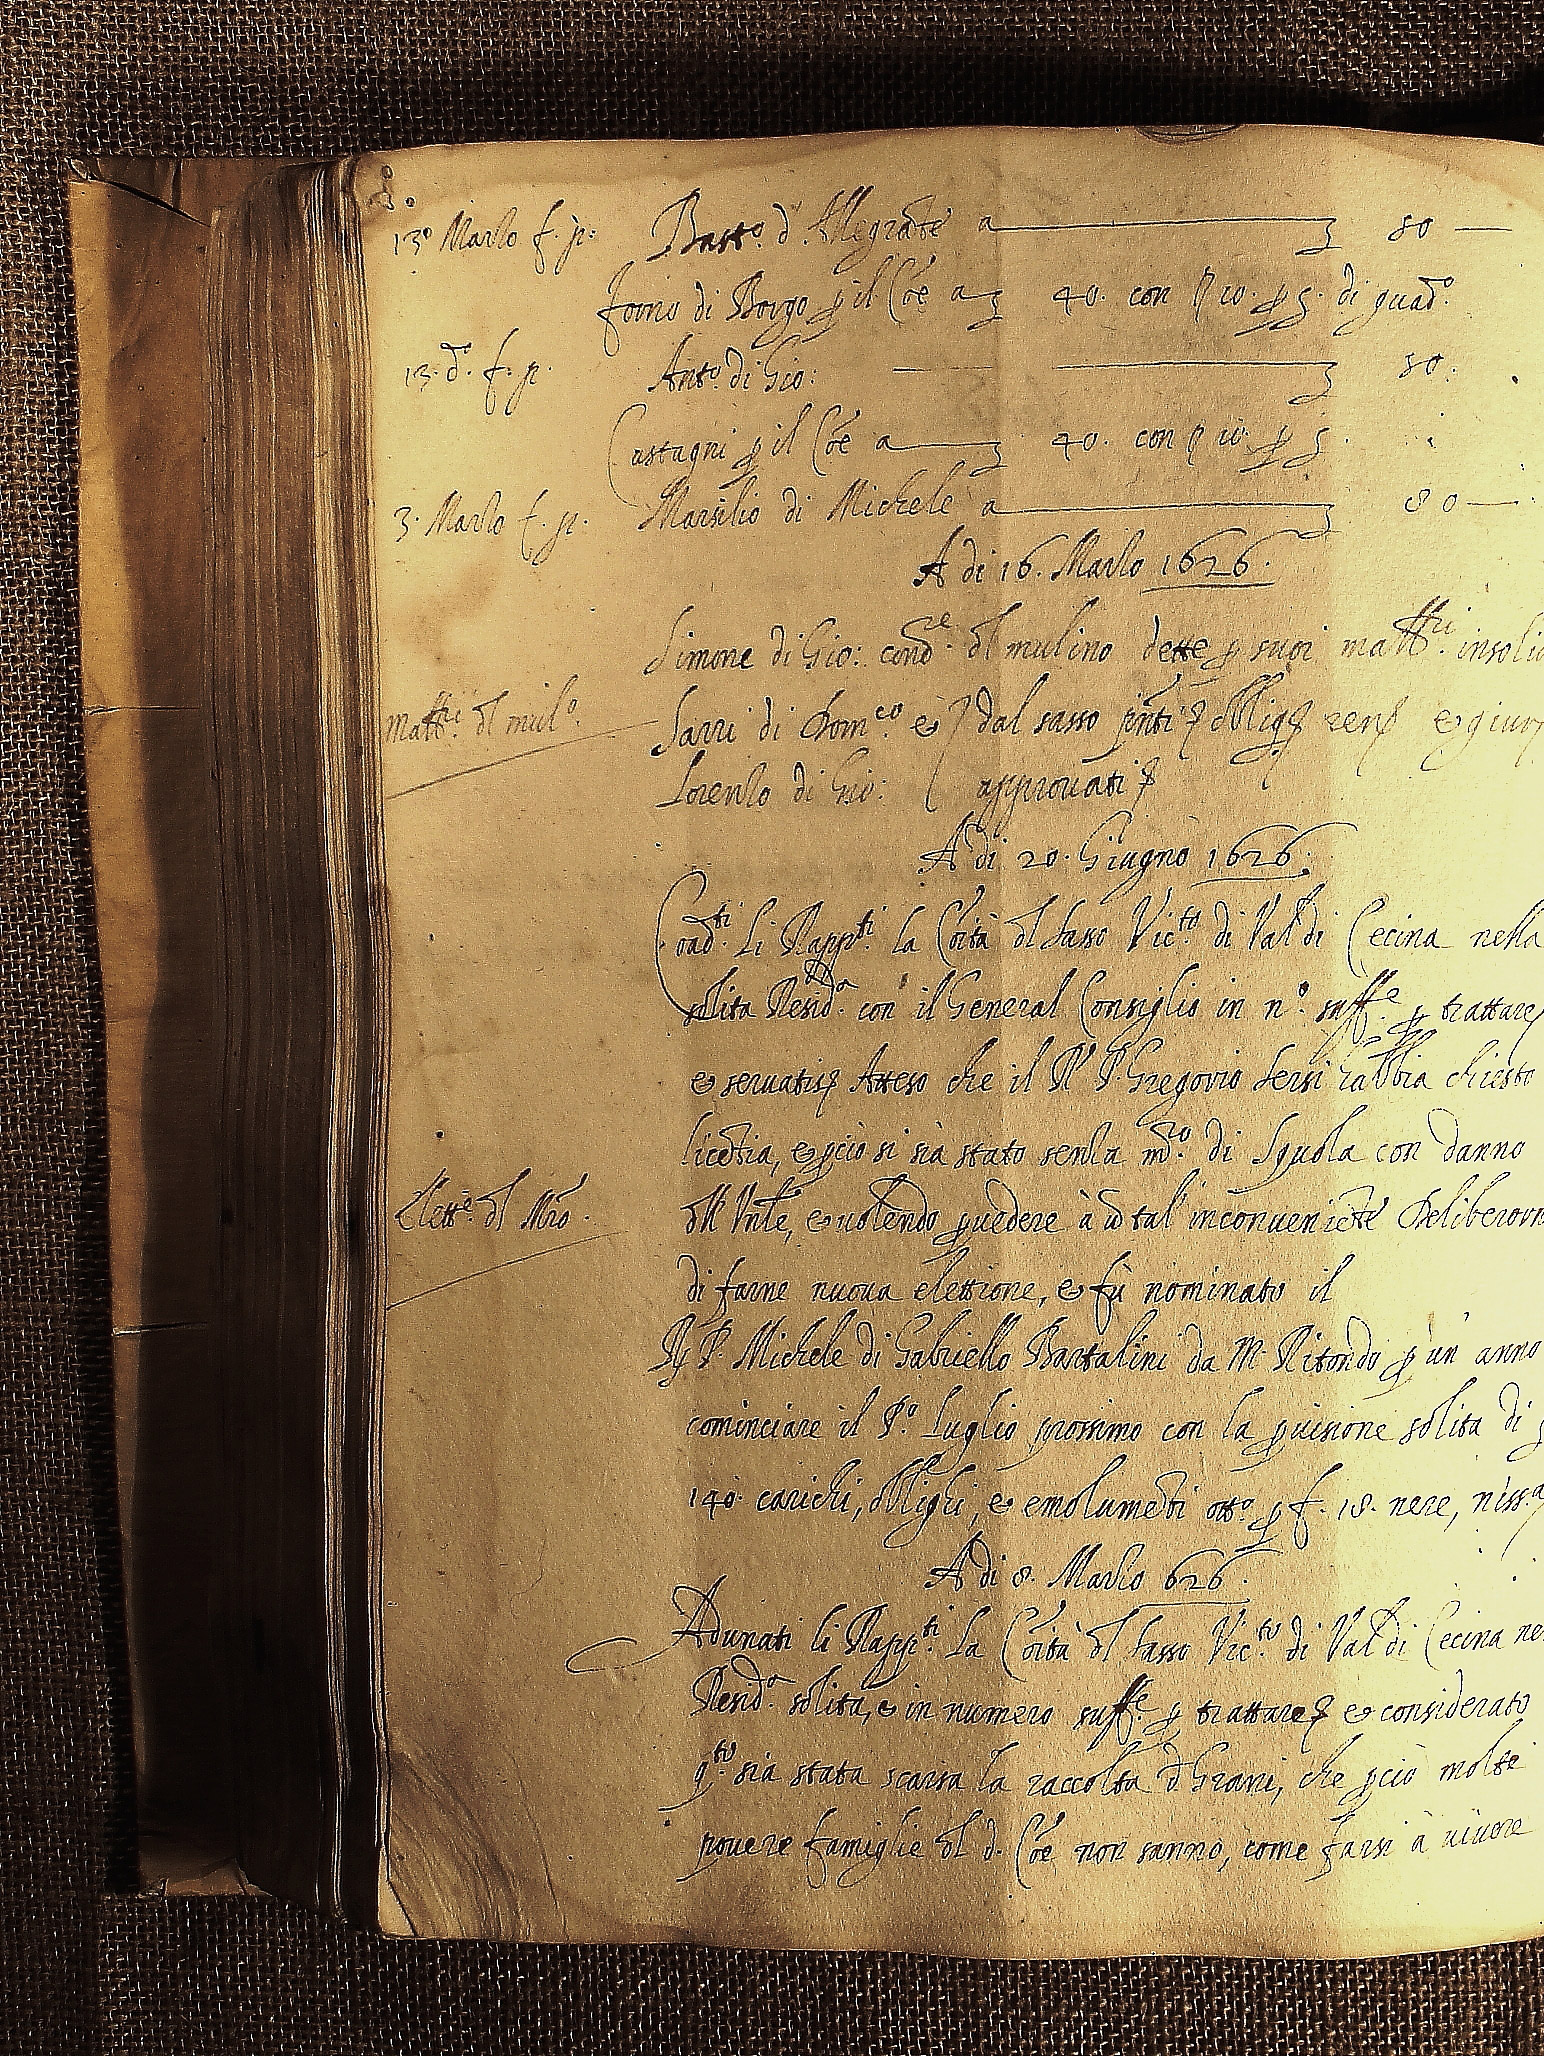 13° Marzo f. p: Basto. d'Allegrate a 80
forno di Borgo p il Coe a 40. con di guado.
13. d°. f. p. Anto. di Gio: 80.
Castagni p il Coe a 40. con
3. Marzo f. p. Marsilio di Michele a 80
A di 16. Marzo 1626.
Simone di Gio: condre. dl mulino dette p suoi mallri. insolid
mallri. dl mulo. Sarri di Domco. e dal sasso pnti oblig e giur
Lorenzo di Gio: approvati
A di 20. Giugno 1626.
Coadti. Li Rappti. la Coità dl Sasso Victo. di Val di Cecina nella
solita Resida. con il General Consiglio in n°. suffe. p trattare
e servatis Atteso che il R P. Gregorio Sersi habbia chiesto
licetia, e pciò si sia stato senza mro. di Squola con danno
Elette. dl Mro. dll Vnle, e volendo pvedere à tal'inconveniete Deliberorn
di farne nuova elettione, e fù nominato il
P. Michele di Gabriello Bartalini da M. Ritondo p un'anno
cominciare il P°. Luglio prossimo con la pvisione solita di
140. carichi, oblighi, e emolumeti otto. p f. 18. nere, niss.a
A di 8. Marzo 626.
Adunati li Rappti. La Coità dl Sasso Victo. di Val di Cecina ne
Resida. solita, e in numero suffe. p trattare e considerato
qto. sia stata scarsa la raccolta d Grani, che pciò molte
povere famiglie dl d. Coe non sanno, come farsi à vivere